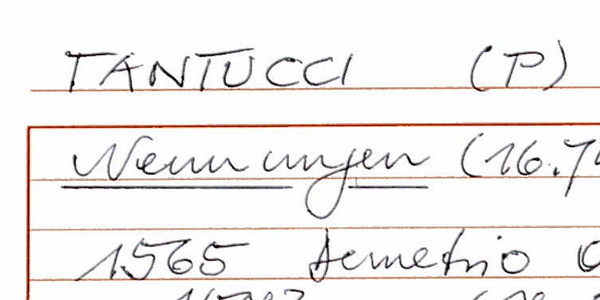 TANTUCCI (P)
Nennungen (16.
1565 Demetrio